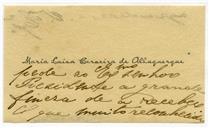 Maria Luiza Cerveira de Albuquerque
pede ao Exmo Senhor
Presidente a grande
fineza de a receber
o que muito reconhecida